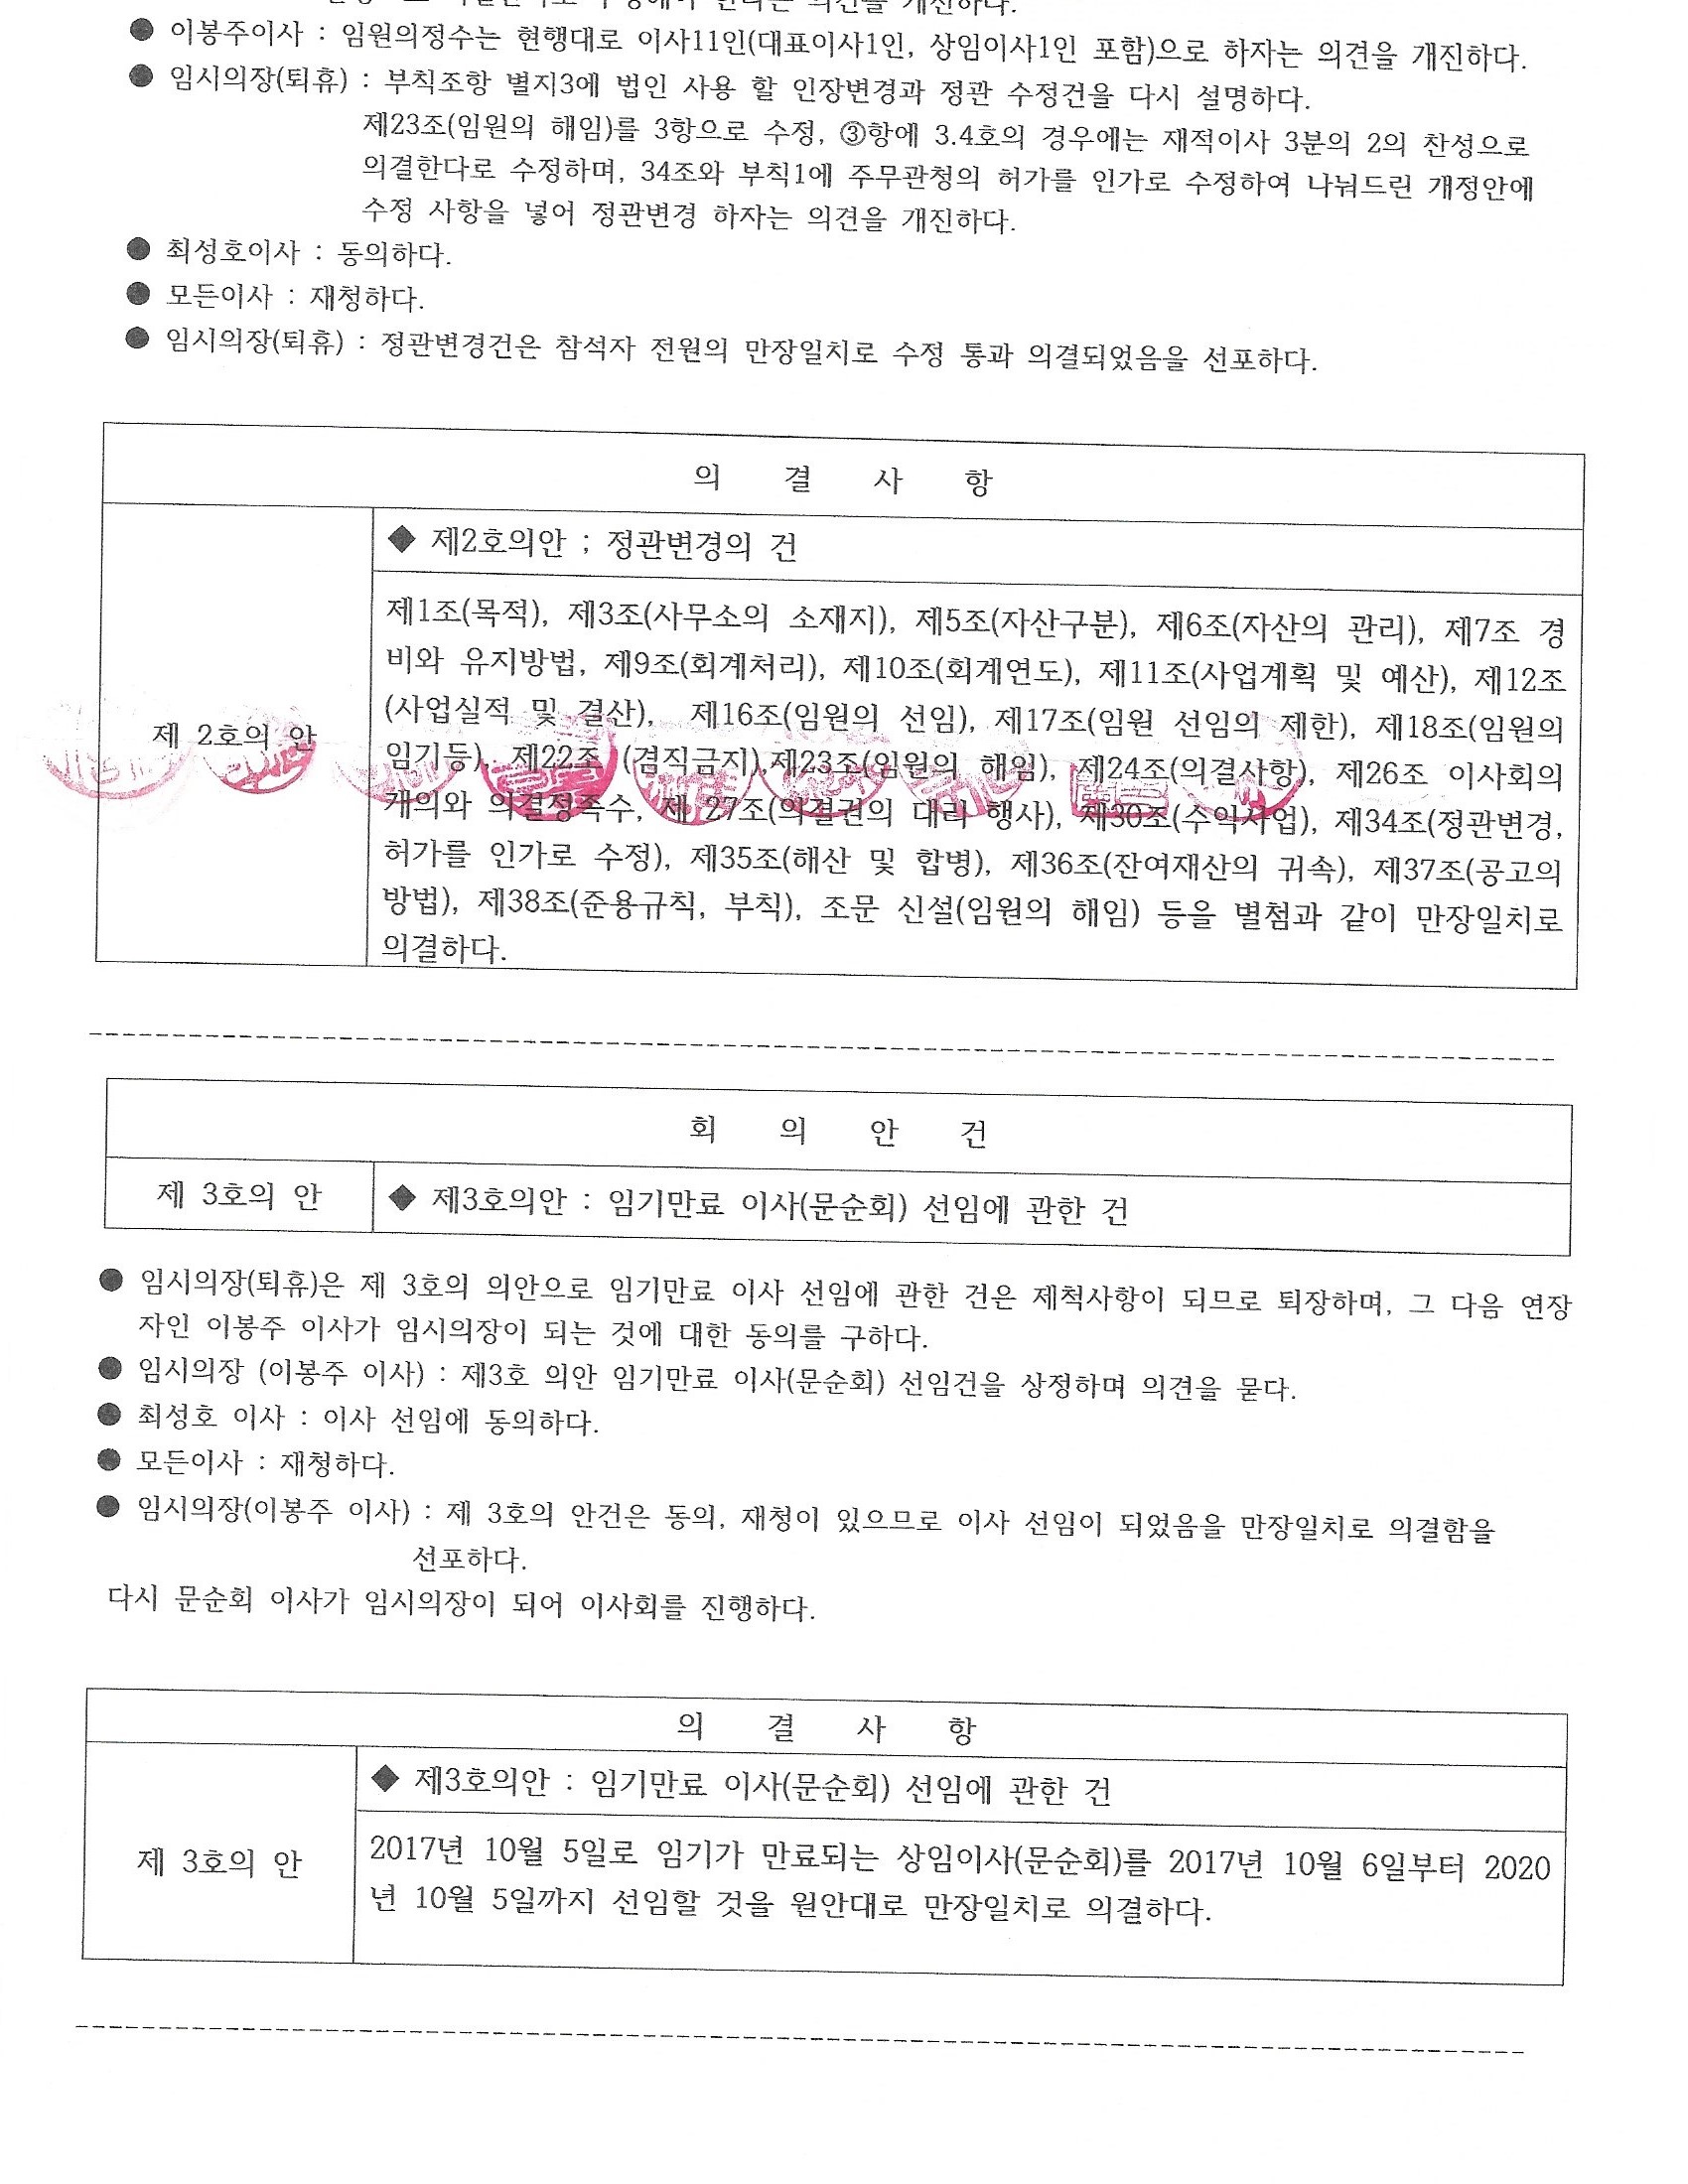 의견을 개진하다.
● 이봉주이사 : 임원의정수는 현행대로 이사11인(대표이사1인, 상임이사1인 포함)으로 하자는 의견을 개진하다.
● 임시의장(퇴휴) : 부칙조항 별지3에 법인 사용 할 인장변경과 정관 수정건을 다시 설명하다.
제23조(임원의 해임)를 3항으로 수정, ③항에 3.4호의 경우에는 재적이사 3분의 2의 찬성으로
의결한다로 수정하며, 34조와 부칙1에 주무관청의 허가를 인가로 수정하여 나눠드린 개정안에
수정 사항을 넣어 정관변경 하자는 의견을 개진하다.
● 최성호이사 : 동의하다.
● 모든이사 : 재청하다.
● 임시의장(퇴휴) : 정관변경건은 참석자 전원의 만장일치로 수정 통과 의결되었음을 선포하다.
의 결 사 항
◆ 제2호의안 ; 정관변경의 건
제 2호의 안
제1조(목적), 제3조(사무소의 소재지), 제5조(자산구분), 제6조(자산의 관리), 제7조 경
비와 유지방법, 제9조(회계처리), 제10조(회계연도), 제11조(사업계획 및 예산), 제12조
(사업실적 및 결산), 제16조(임원의 선임), 제17조(임원 선임의 제한), 제18조(임원의
임기등), 제22조 (겸직금지),제23조(임원의 해임), 제24조(의결사항), 제26조 이사회의
개의와 의결정족수, 제 27조(의결권의 대리 행사), 제30조(수익사업), 제34조(정관변경,
허가를 인가로 수정), 제35조(해산 및 합병), 제36조(잔여재산의 귀속), 제37조(공고의
방법), 제38조(준용규칙, 부칙), 조문 신설(임원의 해임) 등을 별첨과 같이 만장일치로
의결하다.
회 의 안 건
제 3호의 안 ◆ 제3호의안 : 임기만료 이사(문순회) 선임에 관한 건
● 임시의장(퇴휴)은 제 3호의 의안으로 임기만료 이사 선임에 관한 건은 제척사항이 되므로 퇴장하며, 그 다음 연장
자인 이봉주 이사가 임시의장이 되는 것에 대한 동의를 구하다.
● 임시의장 (이봉주 이사) : 제3호 의안 임기만료 이사(문순회) 선임건을 상정하며 의견을 묻다.
● 최성호 이사 : 이사 선임에 동의하다.
● 모든이사 : 재청하다.
● 임시의장(이봉주 이사) : 제 3호의 안건은 동의, 재청이 있으므로 이사 선임이 되었음을 만장일치로 의결함을
선포하다.
다시 문순회 이사가 임시의장이 되어 이사회를 진행하다.
의 결 사 항
◆ 제3호의안 : 임기만료 이사(문순회) 선임에 관한 건
제 3호의 안
2017년 10월 5일로 임기가 만료되는 상임이사(문순회)를 2017년 10월 6일부터 2020
년 10월 5일까지 선임할 것을 원안대로 만장일치로 의결하다.